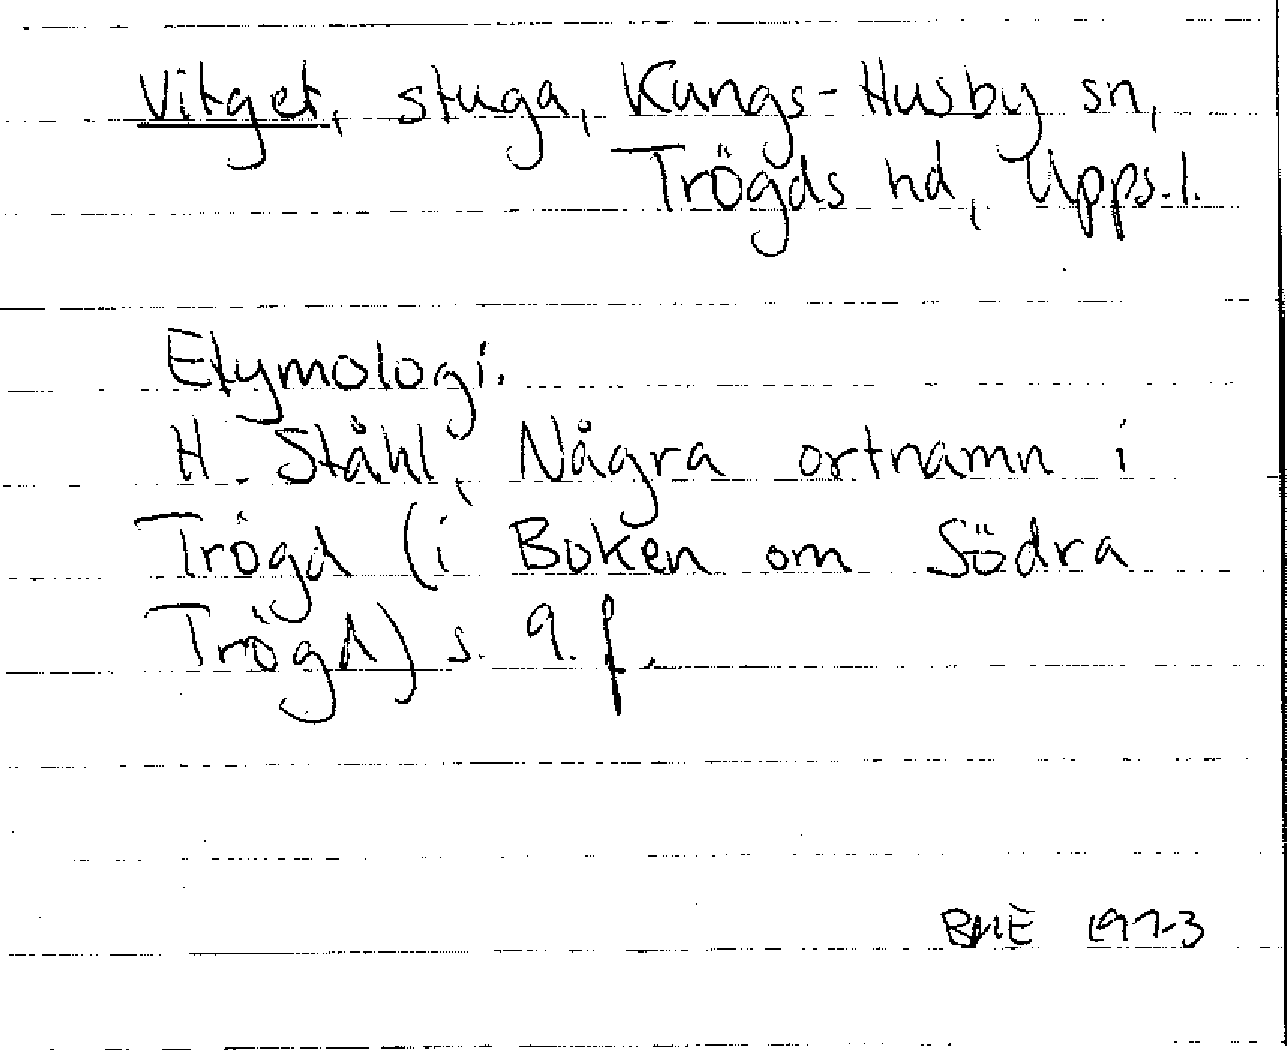 Vitget, stuga, Kungs-Husby sn,
Trögds hd, Upps.l.
Etymologi.
H. Ståhl, Några ortnamn i
Trögd (i Boken om Södra
Trögd) s. 9. f.
1973